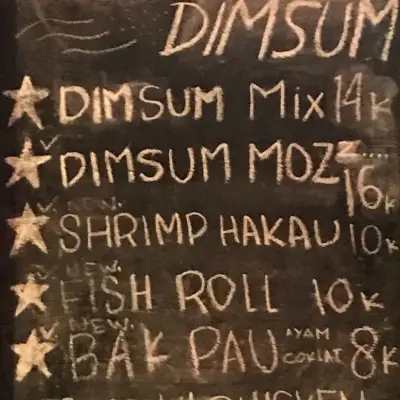 DIMSUM
DIMSUM Mix 14K
DIMSUM MOZZ.... 16K
NEW.
SHRIMP HAKAU 10K
NEW.
FISH ROLL 10K
NEW.
BAK PAU AYAM COKLAT 8K